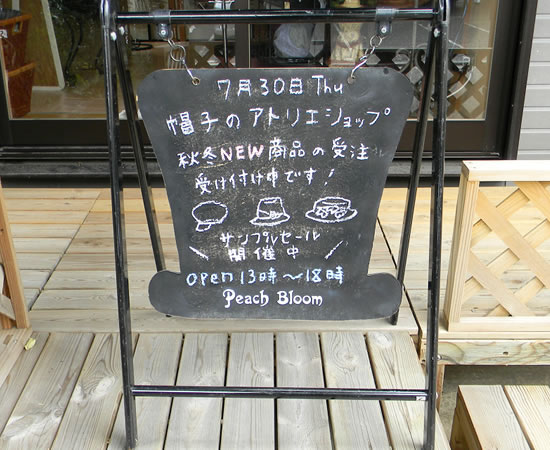 7月30日 Thu
帽子のアトリエショップ
秋冬NEW商品の受注
受け付け中です!
サンプルセール
開催中
OPEN 13時〜18時
Peach Bloom